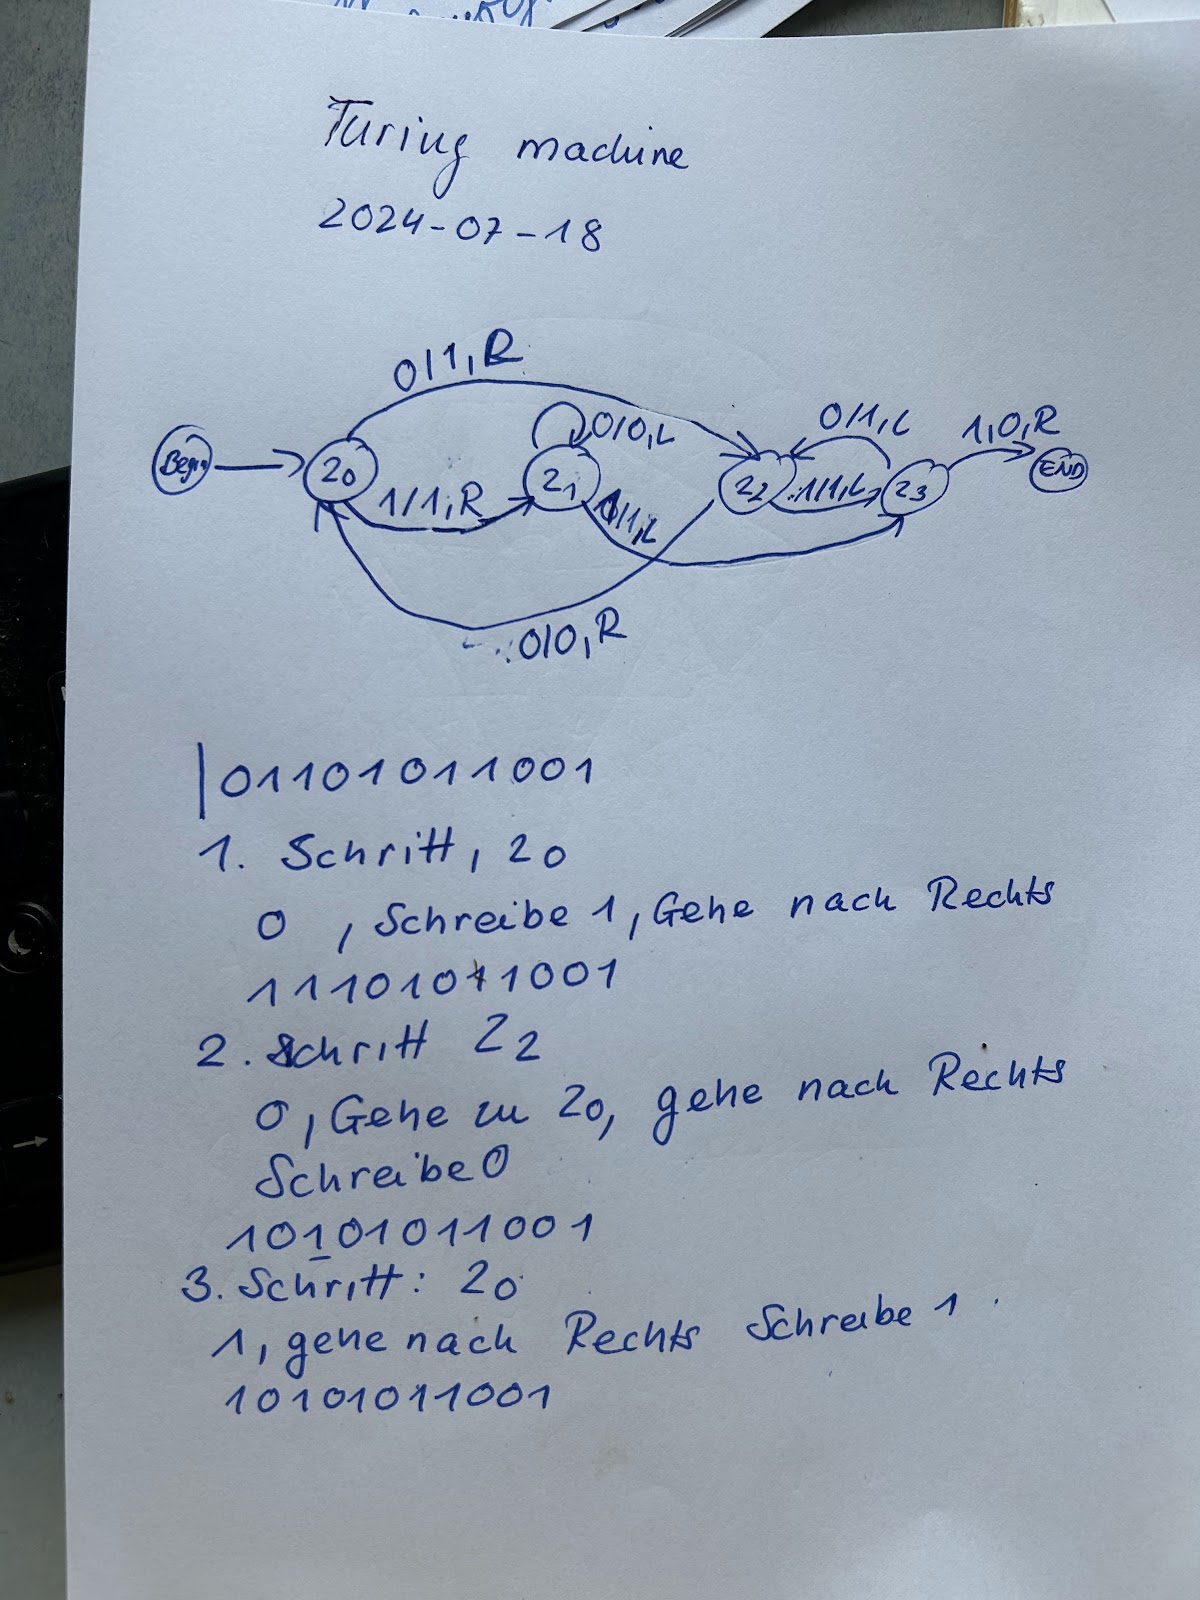 Turing machine
2024-07-18
0/1,R
0/0,L
0/1,L
1,0,R
Begin
z0
1/1,R
z1
z2
1/1,L
z3
END
/1,L
0/0,R
|01101011001
1. Schritt, z0
0 , Schreibe 1, Gehe nach Rechts
11101011001
2. Schritt z2
0, Gehe zu z0, gehe nach Rechts
Schreibe 0
10101011001
3. Schritt: z0
1, gehe nach Rechts Schreibe 1
10101011001